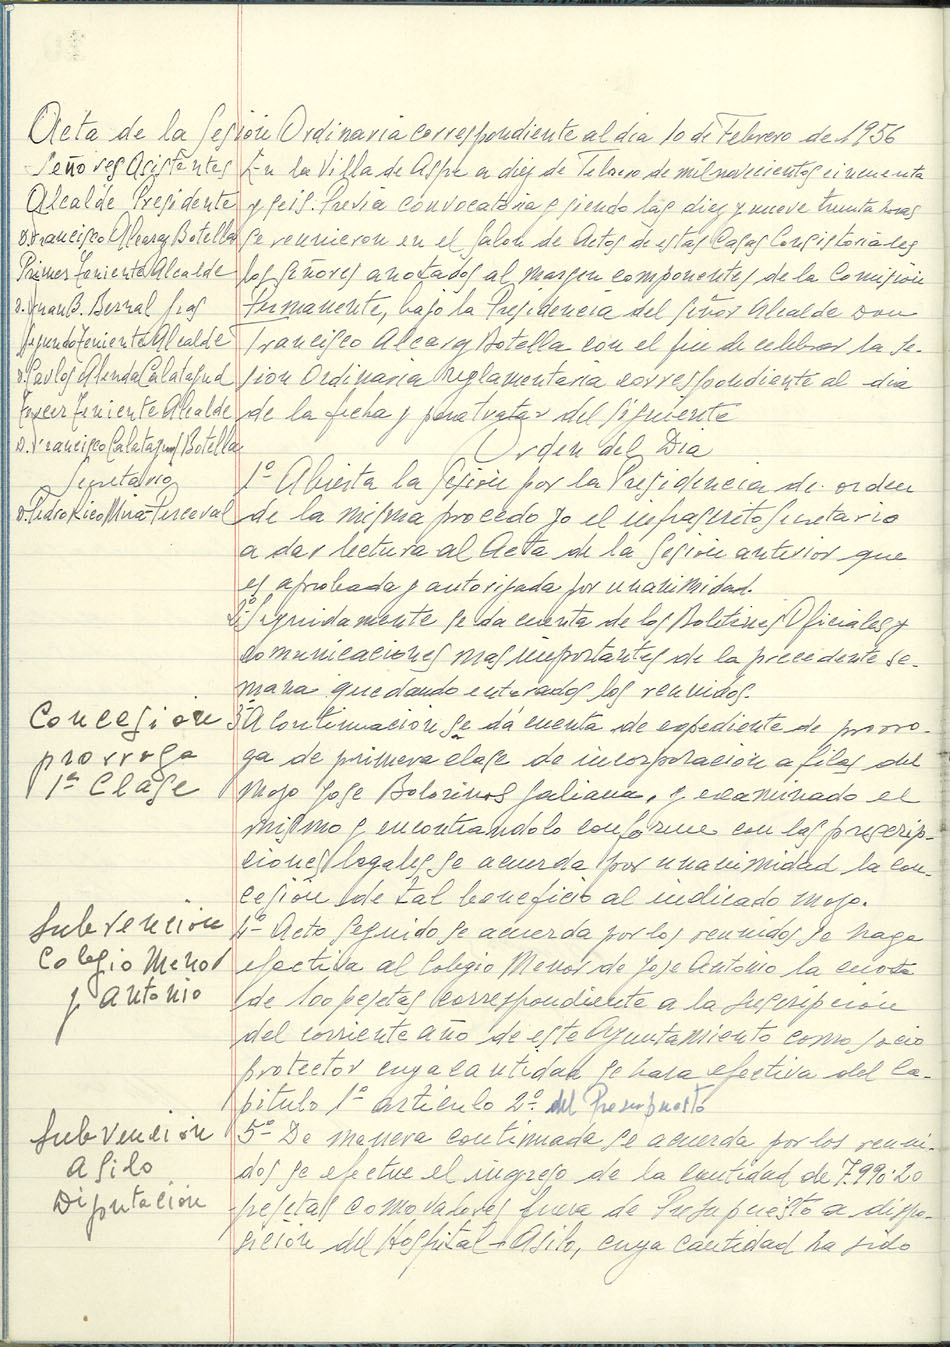 Acta de la Sesión Ordinaria correspondiente al dia 10 de Febrero de 1956
Señores Asistentes
Alcalde Presidente
D. Francisco Alcaraz Botella
Primer Teniente Alcalde
D. Juan B. Bernal
Segundo Teniente Alcalde
D. Carlos Alenda Calatayud
Tercer Teniente Alcalde
D. Francisco Calatayud Botella
Secretario
D. Pedro Rico Mira-Perceval
En la Villa de Aspe a diez de Febrero de mil novecientos cincuenta
y seis. Previa convocatoria y siendo las diez y nueve treinta horas
se reunieron en el Salon de Actos de estas Casas Consistoriales
los señores anotados al margen componentes de la Comision
Permanente, bajo la Presidencia del Señor Alcalde Don
Francisco Alcaraz Botella con el fin de celebrar la Se-
sion Ordinaria reglamentaria correspondiente al dia
de la fecha y para tratar del siguiente
Orden del Dia
1º Abierta la Sesión por la Presidencia de orden
de la misma procedo yo el infrascrito Secretario
a dar lectura al Acta de la Sesion anterior que
es aprobada y autorizada por unanimidad.
2º Seguidamente se da cuenta de los Boletines Oficiales y
comunicaciones mas importantes de la precedente se-
mana quedando enterados los reunidos.
Concesión
prorroga
1ª Clase
3º A continuacion se da cuenta de expediente de prorro-
ga de primera clase de incorporacion a filas del
mozo Jose Botorinos Galiana, y examinado el
mismo y encontrandolo conforme con las prescrip-
ciones legales se acuerda por unanimidad la con-
cesión de tal beneficio al indicado mozo.
Subvención
Colegio Menor
J. Antonio
4º Acto seguido se acuerda por los reunidos se haga
efectiva al Colegio Menor de Jose Antonio la cuota
de 100 pesetas correspondiente a la suscripción
del corriente año de este Ayuntamiento como socio
protector cuya cantidad se hara efectiva del Ca-
pitulo 1º articulo 2º del Presupuesto
Subvención
Asilo
Diputación
5º De manera continuada se acuerda por los reuni-
dos se efectue el ingreso de la cantidad de 7.990'20
pesetas como valores fuera de Presupuesto a dispo-
sición del Hospital-Asilo, cuya cantidad ha sido